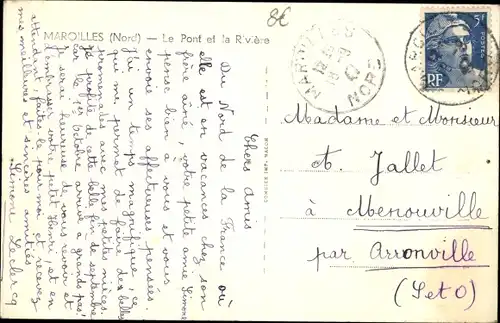 MAROILLES (Nord) — Le Pont et la Rivière
8€
MAROILLES
NORD
5F
POSTES
RF
Chers Amis
Du Nord de la France où
elle est en vacances chez son
frère aîné, votre petite amie Simone
pense bien à vous et vous
envoie ses affectueuses pensées.
J'ai un temps magnifique, ce
qui me permet de faire de belles
promenades avec mes petites nièces.
Je profite de cette belle fin de septembre
car le 1er octobre arrive à grands pas,
je serai heureuse de vous revoir et
d'embrasser votre petit Henri, et en
attendant, faites-le pour moi et recevez
mes meilleures et sincères amitiés
Simone Leclercq
Madame et Monsieur
A. Jallet
à Menouville
par Arronville
(S et O)